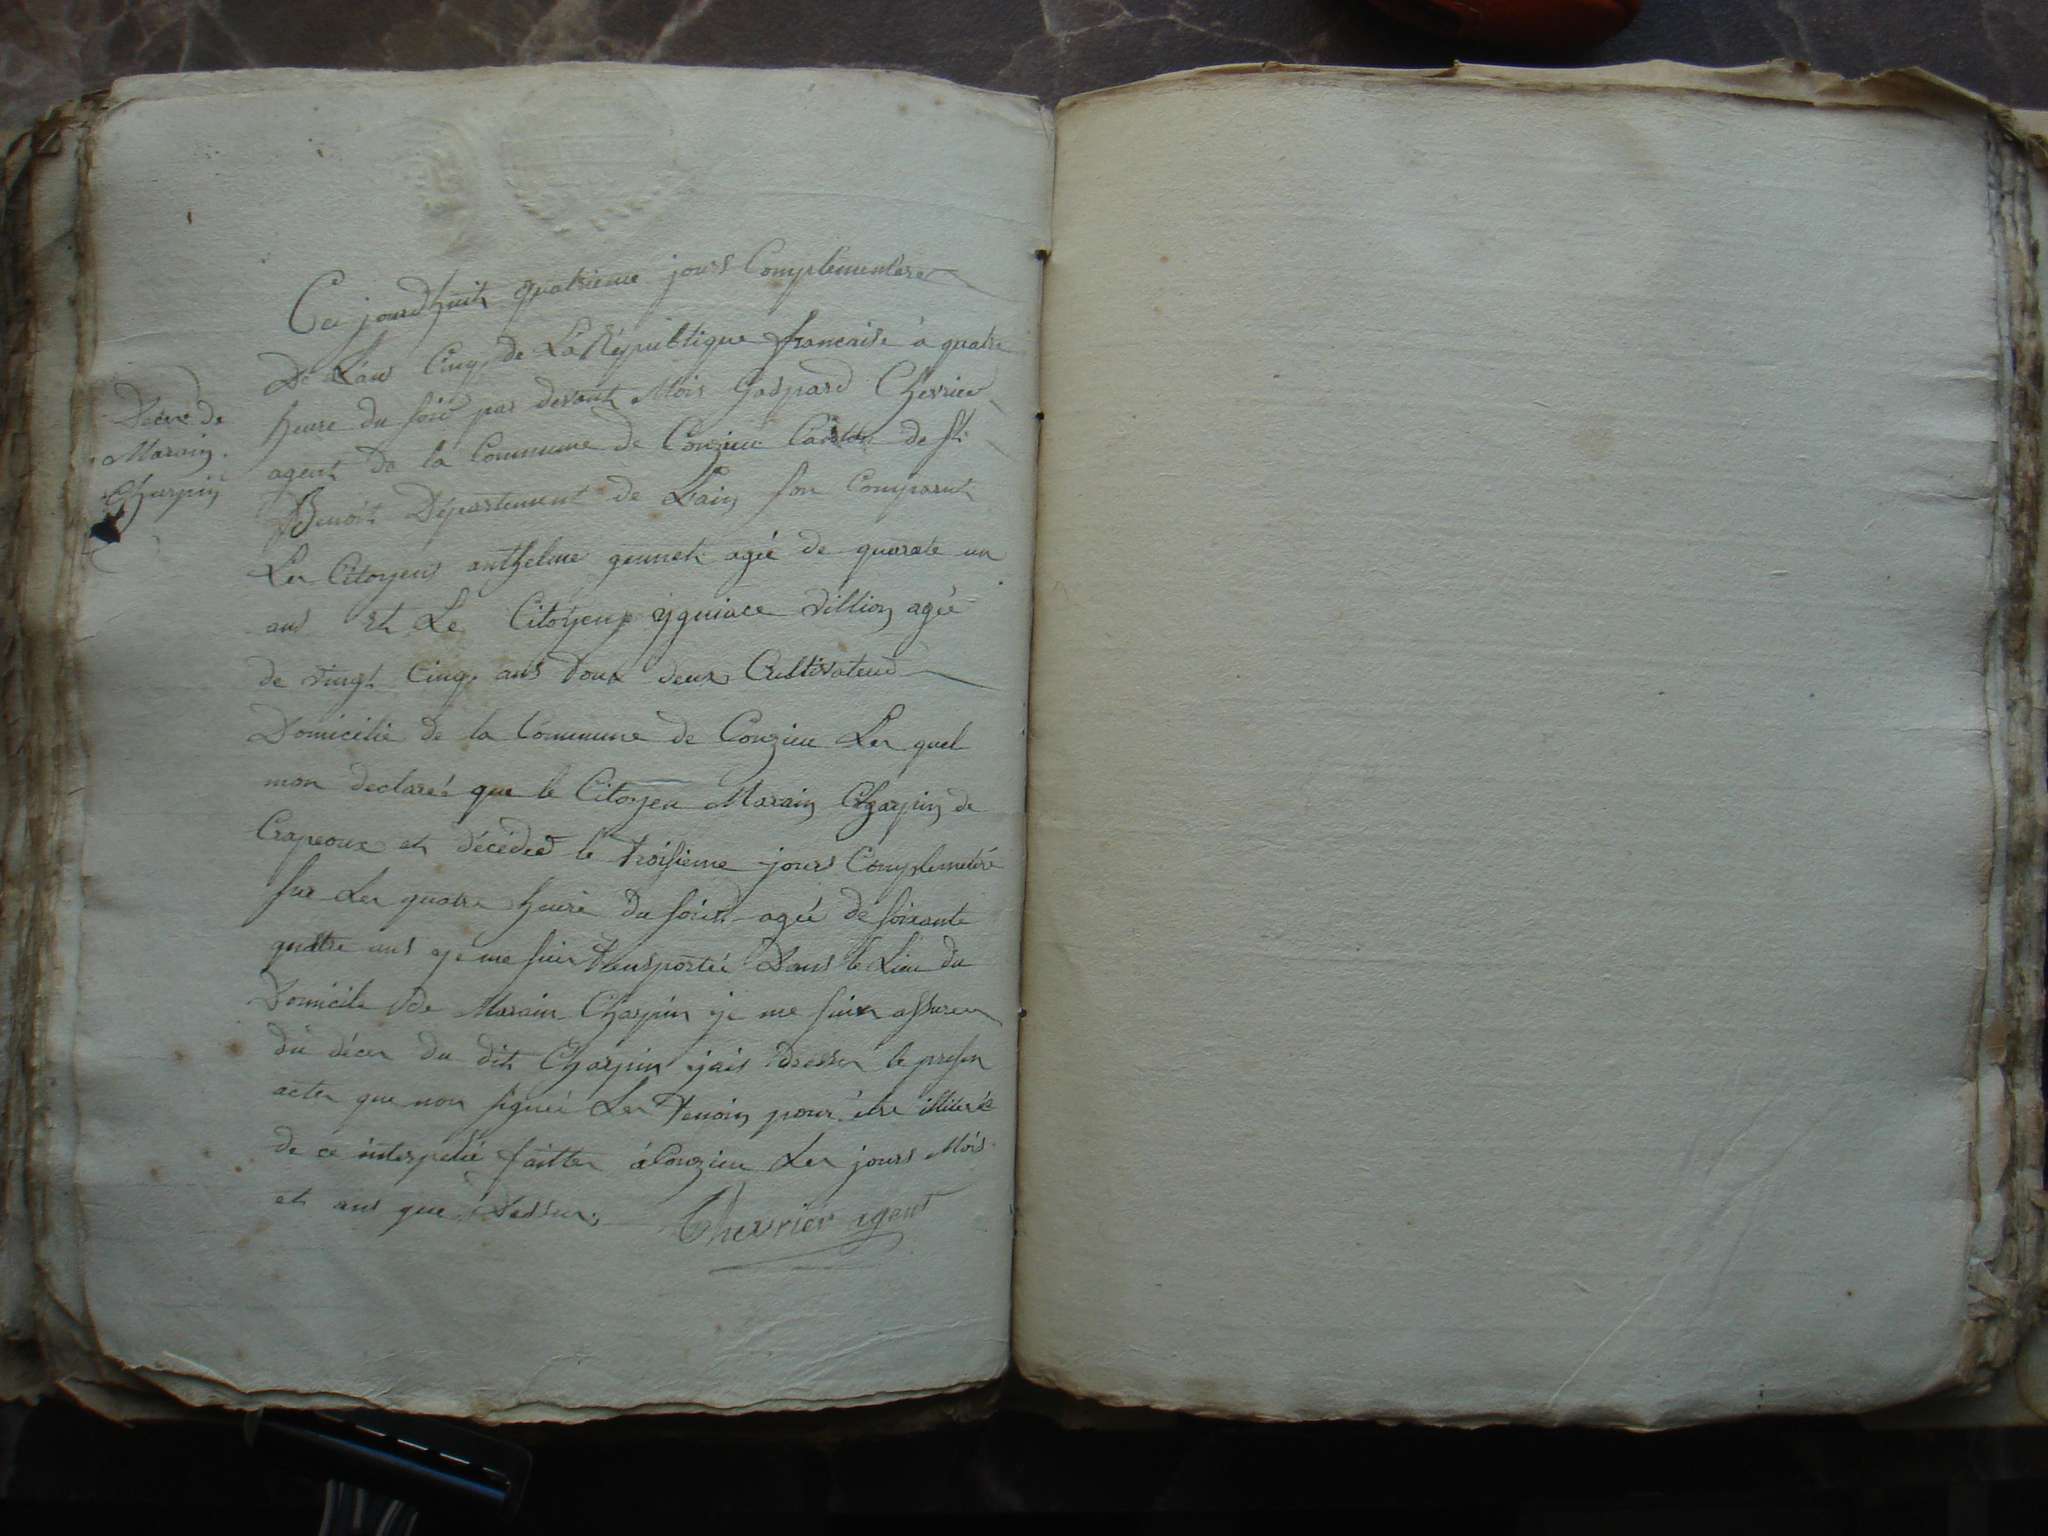 Décer de
Marain
Charpin
Ce jourdhuit quatrieme jours Complementere
De Lans Cinq de La République francaise à quatre
heure du soir par devant Mois Gaspard Chevrier
agent de la Commune de Conzieu Canton de St
Benoit Département de Lain son Comparut
Ler Citoyens anthelme gennet agée de quarate un
ans et Le Citoyens ygniace Villion agée
de vingt Cinq ans toux deux Cultivateur
Domicilié de la Commune de Conzieu Ler quel
mon declaré que le Citoyen Marain Charpin de
Crapeoux et décéded le troisieme jours Complemetré
sur Ler quatre heure du soir agée de soixante
quatre ans je me suir transportée Dans le Lieu du
Domicile de Marain Charpin je me suix assurer
du décer du dit Charpin jais dresser le presen
acter que non signeé Ler temoin pour étre illiteré
de ce interpelée faitter à Conzieu Ler jours Mois
et ans que Dessur
Chevrier agent